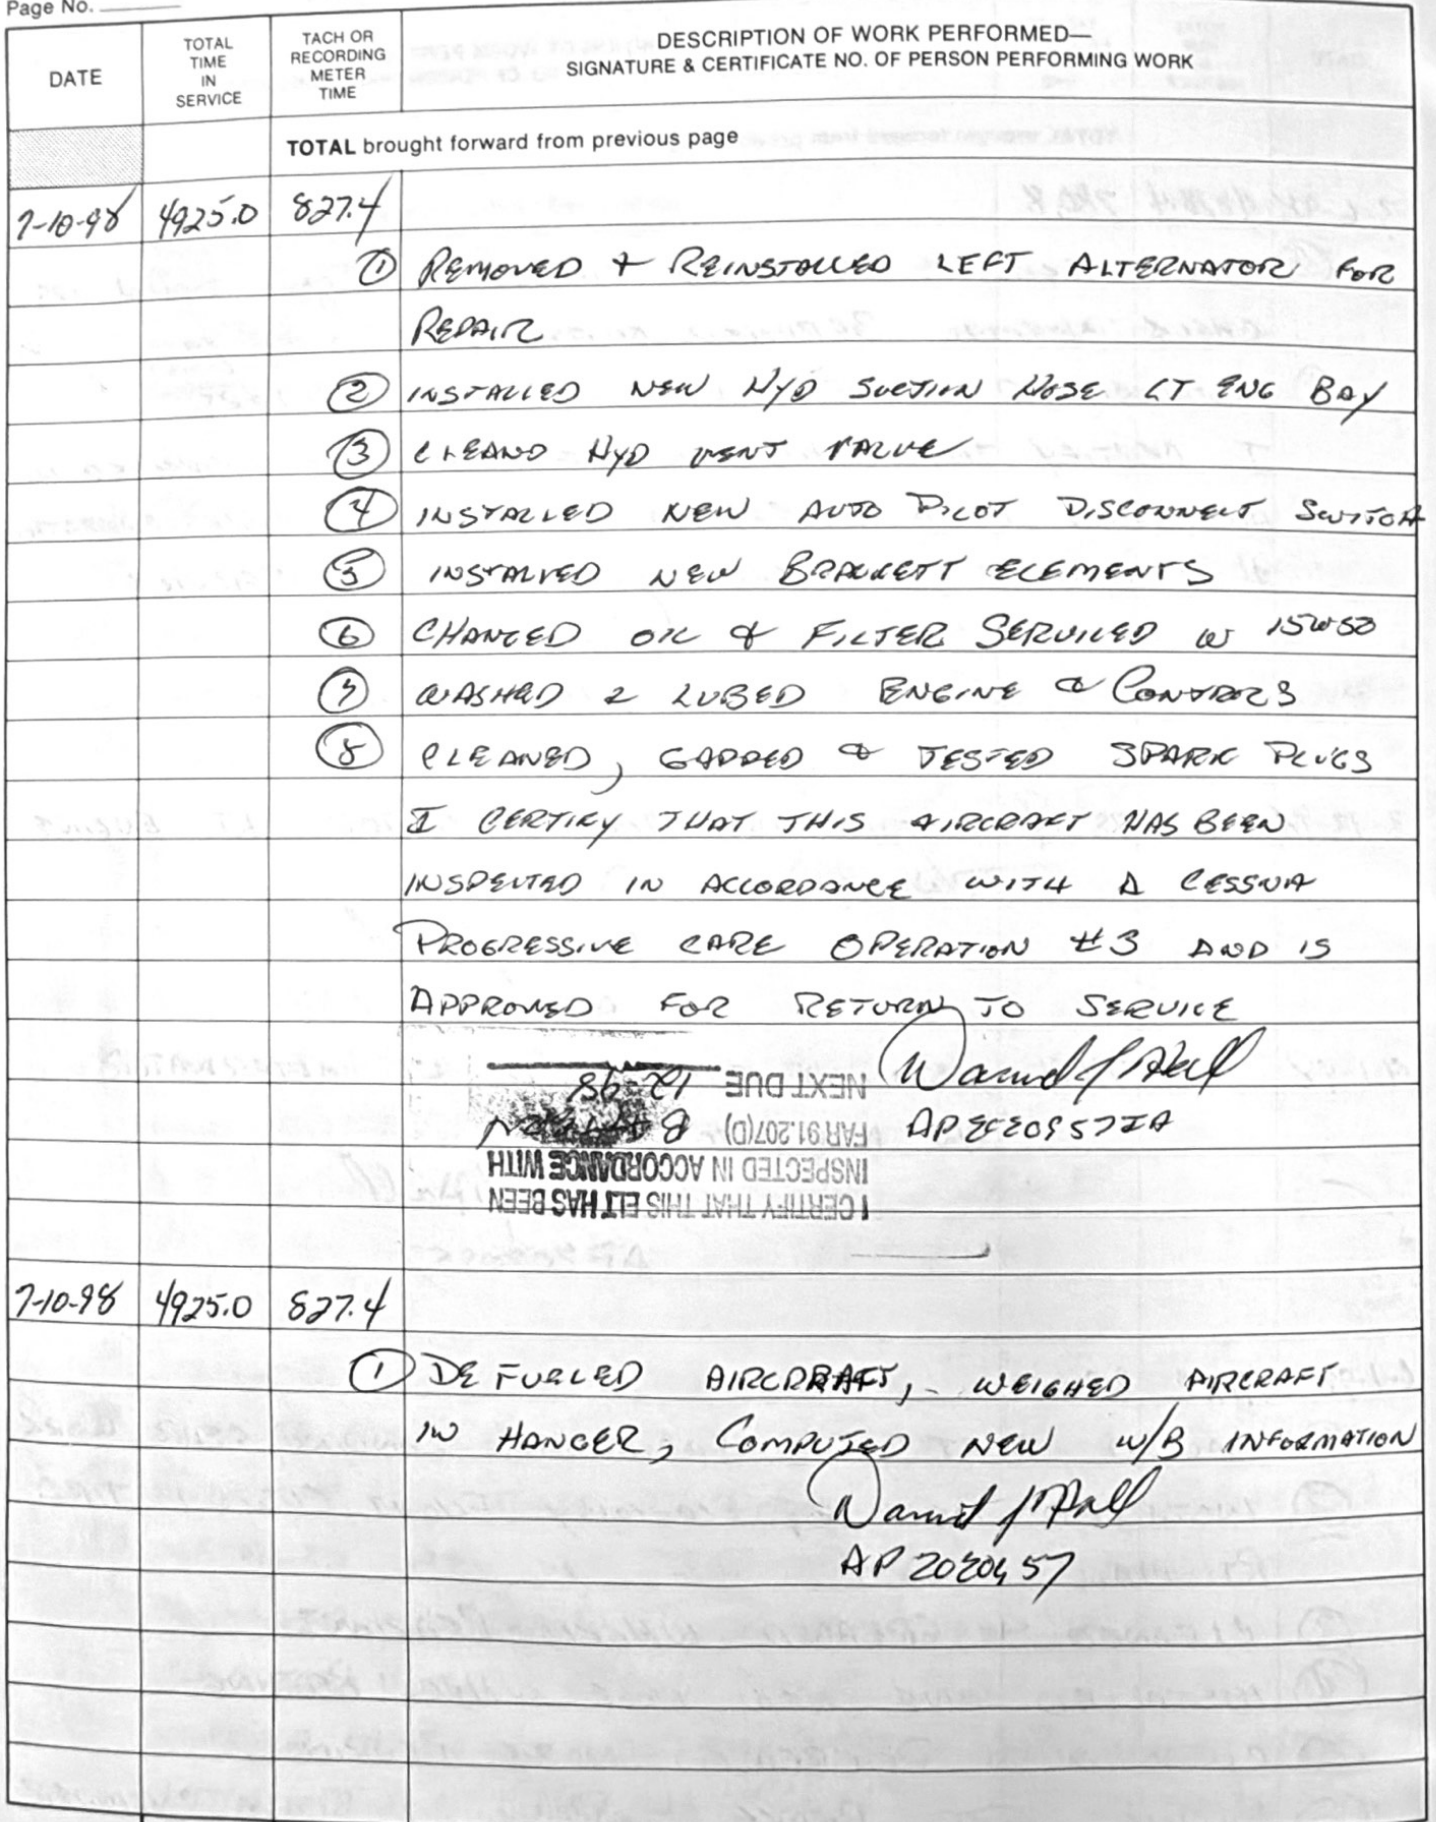 Page No.
DATE
TOTAL
TIME
IN
SERVICE
TACH OR
RECORDING
METER
TIME
DESCRIPTION OF WORK PERFORMED—
SIGNATURE & CERTIFICATE NO. OF PERSON PERFORMING WORK
TOTAL brought forward from previous page
7-10-98 4925.0 827.4
① REMOVED & REINSTALLED LEFT ALTERNATOR FOR
REPAIR
② INSTALLED NEW HYD SUCTION HOSE LT ENG BAY
③ CLEAND HYD VENT VALVE
④ INSTALLED NEW AUTO PILOT DISCONNECT SWITCH
⑤ INSTALLED NEW BRACKETT ELEMENTS
⑥ CHANGED OIL & FILTER SERVICED W 15W50
⑦ WASHED & LUBED ENGINE & CONTROLS
⑧ CLEANED, GAPPED & TESTED SPARK PLUGS
I CERTIFY THAT THIS AIRCRAFT HAS BEEN
INSPECTED IN ACCORDANCE WITH A CESSNA
PROGRESSIVE CARE OPERATION #3 AND IS
APPROVED FOR RETURN TO SERVICE
I CERTIFY THAT THIS ELT HAS BEEN
INSPECTED IN ACCORDANCE WITH
FAR 91.207(D)
NEXT DUE 12-98
7-10-98 4925.0 827.4
① DEFUELED AIRCRRAFT, WEIGHED AIRCRAFT
IN HANGER, COMPUTED NEW W/B INFORMATION
AP 2020457